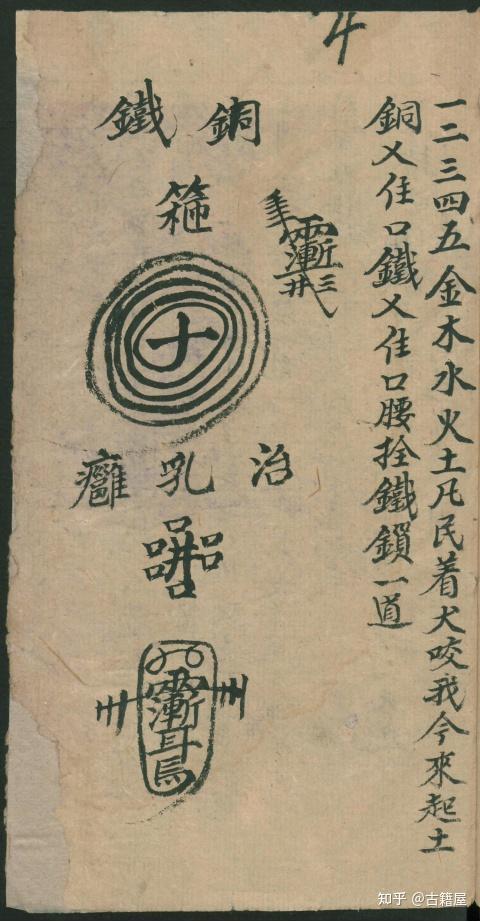 一二三四五金木水火土凡民着犬咬我今來起土
銅㐅住口鐵㐅住口腰拴鐵鎖一道
銅鐵
箍
十
治乳癰
知乎 @古籍屋